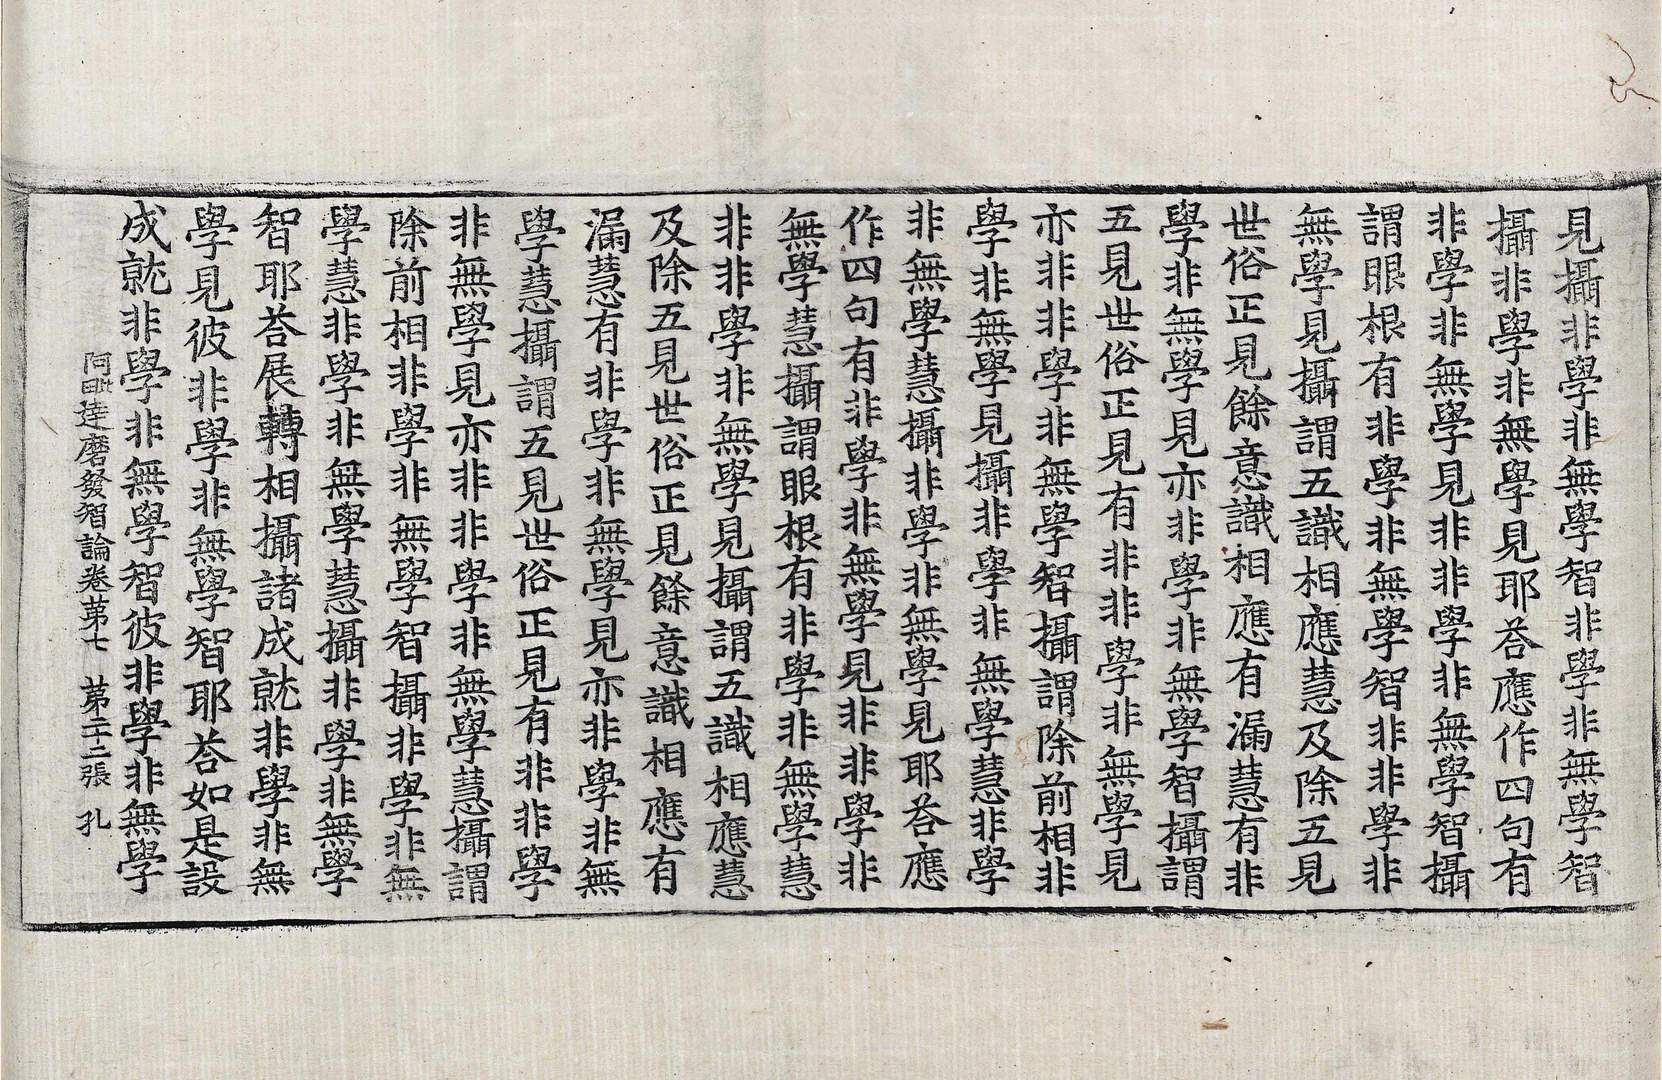 見攝非學非無學智非學非無學智
攝非學非無學見耶荅應作四句有
非學非無學見非非學非無學智攝
謂眼根有非學非無學智非非學非
無學見攝謂五識相應慧及除五見
世俗正見餘意識相應有漏慧有非
學非無學見亦非學非無學智攝謂
五見世俗正見有非非學非無學見
亦非非學非無學智攝謂除前相非
學非無學見攝非學非無學慧非學
非無學慧攝非學非無學見耶荅應
作四句有非學非無學見非非學非
無學慧攝謂眼根有非學非無學慧
非非學非無學見攝謂五識相應慧
及除五見世俗正見餘意識相應有
漏慧有非學非無學見亦非學非無
學慧攝謂五見世俗正見有非非學
非無學見亦非非學非無學慧攝謂
除前相非學非無學智攝非學非無
學慧非學非無學慧攝非學非無學
智耶荅展轉相攝諸成就非學非無
學見彼非學非無學智耶荅如是設
成就非學非無學智彼非學非無學
阿毗達磨發智論卷苐七 苐二十二張 孔